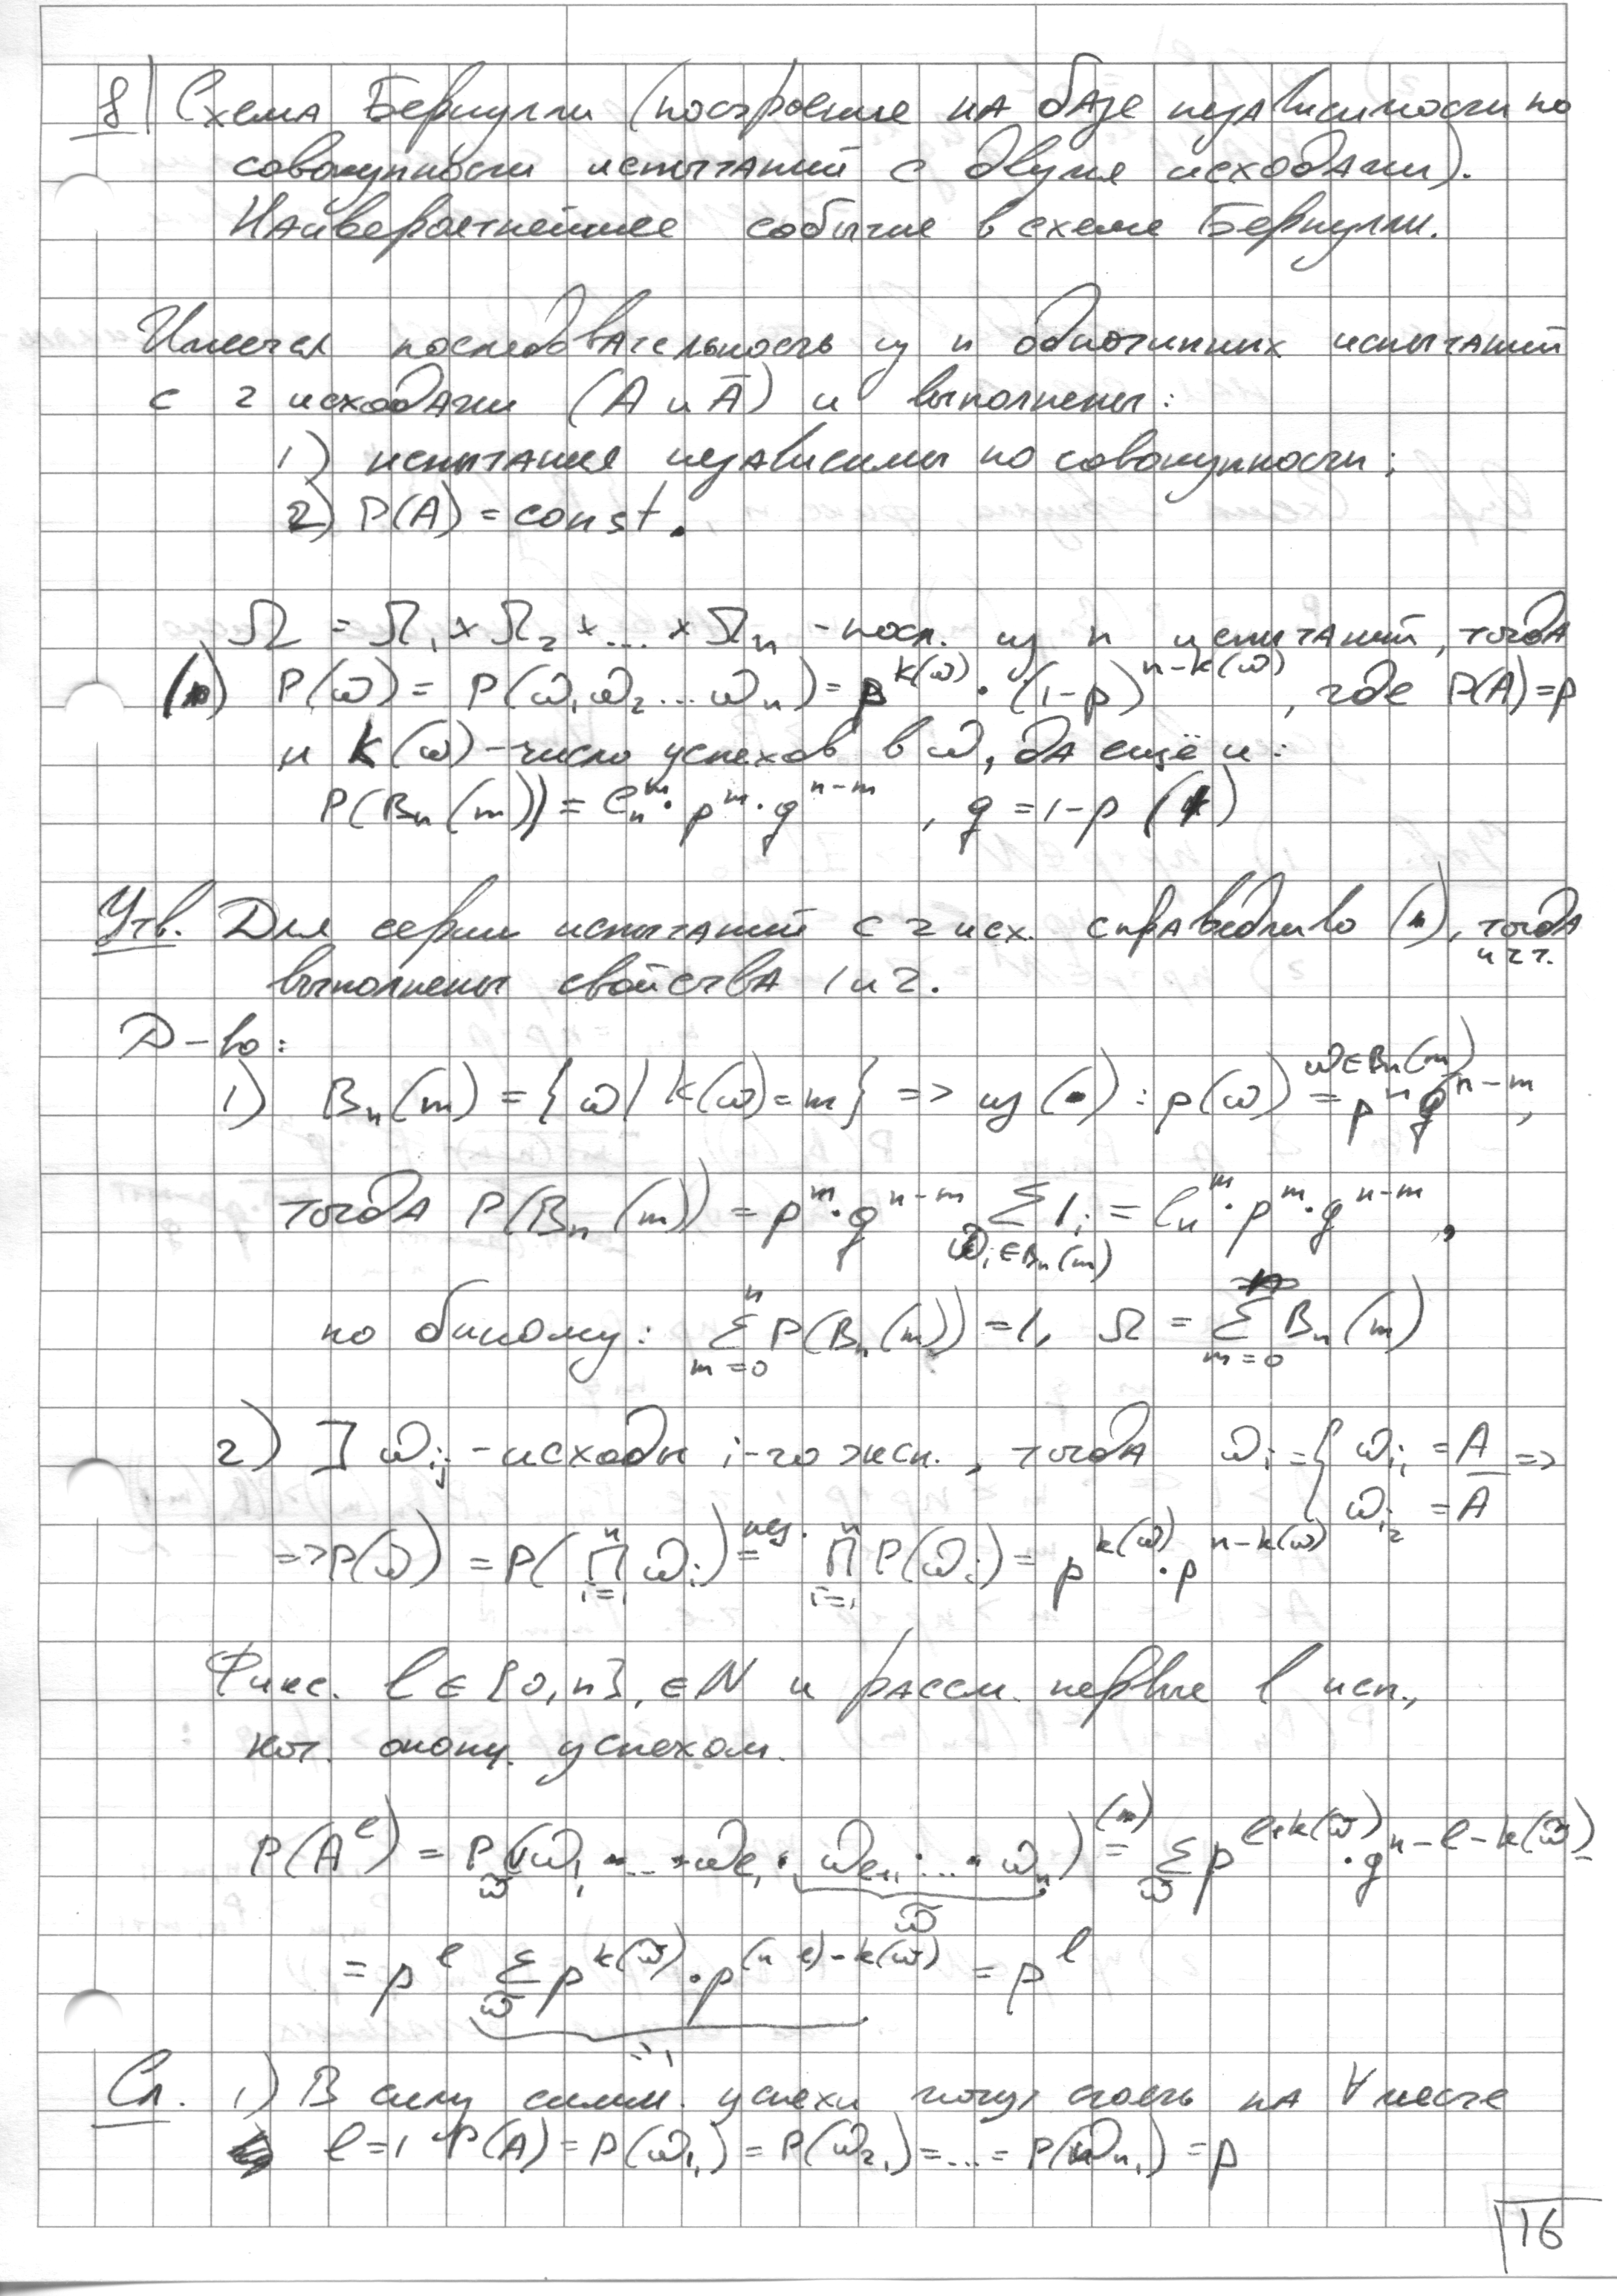 8) Схема Бернулли (построение на базе независимости по
совокупности испытаний с двумя исходами).
Наивероятнейшее событие в схеме Бернулли.
Имеется последовательность из n однотипных испытаний
с 2 исходами (A и Ā) и выполнены:
1) испытания независимы по совокупности;
2) P(A) = const.
Ω = Ω₁ × Ω₂ × ... × Ωₙ - посл. из n испытаний, тогда
(•) P(ω) = P(ω₁ω₂...ωₙ) = p^{k(ω)} · (1-p)^{n-k(ω)}, где P(A)=p
и k(ω) - число успехов в ω, да ещё и:
P(Bₙ(m)) = Cₙᵐ · pᵐ · q^{n-m}, q = 1-p (*)
Утв. Для серии испытаний с 2 исх. справедливо (•), тогда
и т.т.
выполнены свойства 1 и 2.
Д-во:
1) Bₙ(m) = {ω | k(ω) = m} => из (•): p(ω) =^{ω∈Bₙ(m)} pⁿ q^{n-m},
тогда P(Bₙ(m)) = pᵐ · q^{n-m} Σ_{ωᵢ∈Bₙ(m)} 1ᵢ = Cₙᵐ · pᵐ · q^{n-m},
по биному: Σ_{m=0}^{n} P(Bₙ(m)) = 1, Ω = Σ_{m=0}^{n} Bₙ(m)
2) ∃ ω_{ij} - исходы i-го эксп., тогда ωᵢ = { ω_{i₁} = A =>
ω_{i₂} = Ā
=> P(ω) = P(∏_{i=1}^{n} ωᵢ) =^{нез.} ∏_{i=1}^{n} P(ωᵢ) = p^{k(ω)} · p^{n-k(ω)}
Фикс. l ∈ {0, n}, ∈ N и рассм. первые l исп.,
кот. оконч. успехом.
P(A^l) = P_{ω̃}(ω_{1₁} · ... · ω_{l₁} · ω_{l+1} · ... · ωₙ) =^{(•)} Σ_{ω̃} p^{l+k(ω̃)} · q^{n-l-k(ω̃)} =
ω̃
= p^l Σ_{ω̃} p^{k(ω̃)} · p^{(n-l)-k(ω̃)} = p^l
=1
Сл. 1) В силу симм. успехи могут стоять на ∀ месте
l=1 P(A) = P(ω_{1₁}) = P(ω_{2₁}) = ... = P(ω_{n₁}) = p
16